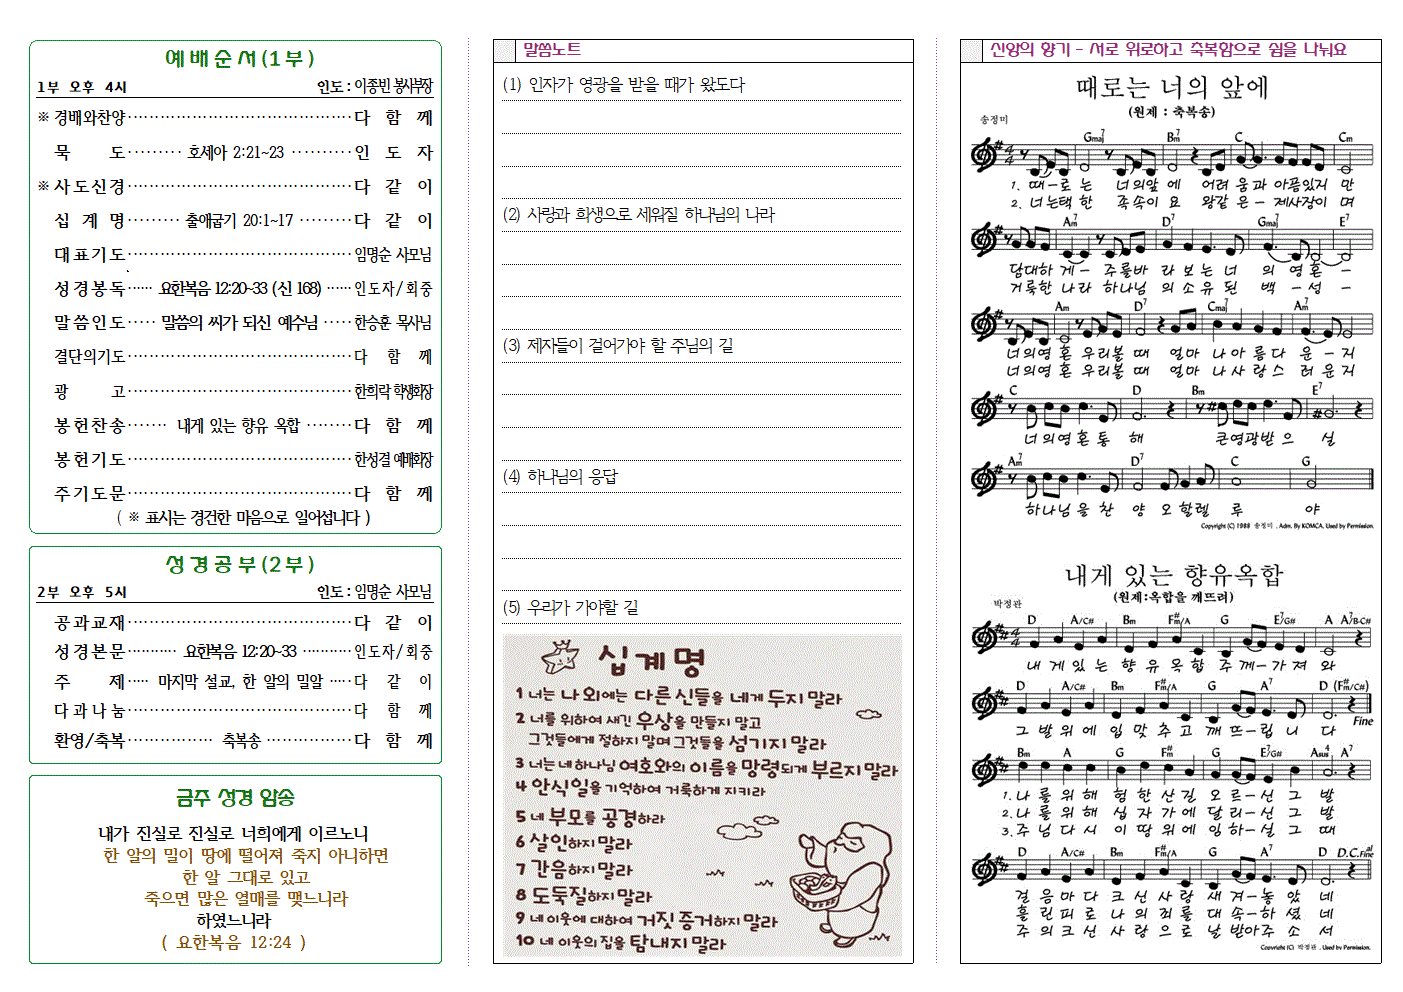 예배순서(1부)
1부 오후 4시 인도 : 이종빈 봉사부장
※ 경배와찬양 다 함 께
묵 도 호세아 2:21~23 인 도 자
※ 사도신경 다 같 이
십 계 명 출애굽기 20:1~17 다 같 이
대표기도 임명순 사모님
성경봉독 요한복음 12:20~33 (신 168) 인도자/회중
말씀인도 말씀의 씨가 되신 예수님 한승훈 목사님
결단의기도 다 함 께
광 고 한희락 학생회장
봉헌찬송 내게 있는 향유 옥합 다 함 께
봉헌기도 한성결 예배회장
주기도문 다 함 께
( ※ 표시는 경건한 마음으로 일어섭니다 )
성경공부(2부)
2부 오후 5시 인도 : 임명순 사모님
공과교재 다 같 이
성경본문 요한복음 12:20~33 인도자/회중
주 제 마지막 설교, 한 알의 밀알 다 같 이
다과나눔 다 함 께
환영/축복 축복송 다 함 께
금주 성경 암송
내가 진실로 진실로 너희에게 이르노니
한 알의 밀이 땅에 떨어져 죽지 아니하면
한 알 그대로 있고
죽으면 많은 열매를 맺느니라
하였느니라
( 요한복음 12:24 )
말씀노트
(1) 인자가 영광을 받을 때가 왔도다
(2) 사랑과 희생으로 세워질 하나님의 나라
(3) 제자들이 걸어가야 할 주님의 길
(4) 하나님의 응답
(5) 우리가 가야할 길
십계명
1 너는 나 외에는 다른 신들을 네게 두지 말라
2 너를 위하여 새긴 우상을 만들지 말고
그것들에게 절하지 말며 그것들을 섬기지 말라
3 너는 네 하나님 여호와의 이름을 망령되게 부르지 말라
4 안식일을 기억하여 거룩하게 지키라
5 네 부모를 공경하라
6 살인하지 말라
7 간음하지 말라
8 도둑질하지 말라
9 네 이웃에 대하여 거짓 증거하지 말라
10 네 이웃의 집을 탐내지 말라
신앙의 향기 - 서로 위로하고 축복함으로 쉼을 나눠요
때로는 너의 앞에
(원제 : 축복송)
송정미
Gmaj7 Bm7 C Cm
1. 때-로 는 너의앞 에 어려 움과 아픔있지 만
2. 너는택 한 족속이 요 왕같 은- 제사장이 며
Am7 D7 Gmaj7 E7
담대하 게- 주를바 라보는너 의 영혼 -
거룩한 나라 하나님 의소유된 백 - 성 -
Am D7 Cmaj7 Am7
너의영 혼 우리볼 때 얼마 나아 름다 운 - 지
너의영 혼 우리볼 때 얼마 나사 랑스 러 운지
C D Bm E7
너의영혼통 해 큰영광받으 실
Am7 D7 C G
하나님을찬 양 오할렐 루 야
Copyright (C) 1988 송정미. Adm. By KOMCA. Used by Permission.
내게 있는 향유옥합
(원제:옥합을 깨뜨려)
박정관
D A/C# Bm F#m/A G E7/G# A A7/B-C#
내게있 는 향유옥합 주께-가져 와
D A/C# Bm F#m/A G A7 D (F#m/C#)
그 발위에 입맞추고 깨뜨-립니 다
Fine
Bm A G F#m G E7/G# Asus4 A7
1. 나 를위해 험한산길 오르-신 그 발
2. 나 를위해 십자가에 달리-신 그 발
3. 주 님다시 이땅위에 임하-실 그 때
D A/C# Bm F#m/A G A7 D D.C. al Fine
걸 음마다 크신사랑 새겨-놓았 네
흘 린피로 나의죄를 대속-하셨 네
주 의크신 사랑으로 날 받아주소 서
Copyright (C) 박정관. Used by Permission.